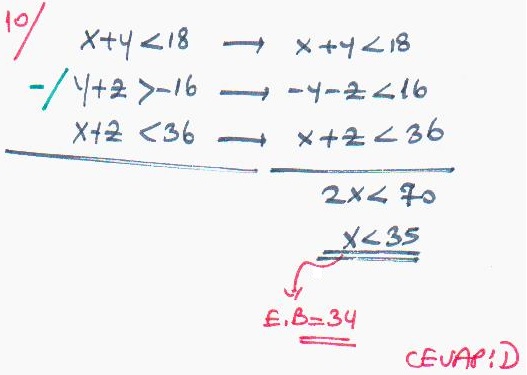 10/ x+y<18 → x+y<18
-/ y+z>-16 → -y-z<16
x+z<36 → x+z<36
2x<70
x<35
E.B=34
CEVAP:D